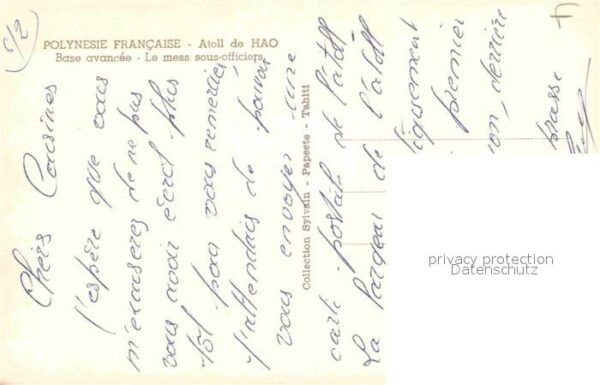 c/2
POLYNESIE FRANÇAISE - Atoll de HAO
Base avancée - Le mess sous-officiers
Collection Sylvain - Papeete - Tahiti
Chers Cousines
J'espère que vous
m'excuserez de ne pas
vous avoir écrit plus
tôt pour vous remercier
J'attendais de pouvoir
vous envoyer une
carte postale de l'atoll
La de l'atoll
iquement
premier
on, derrière
privacy protection
Datenschutz